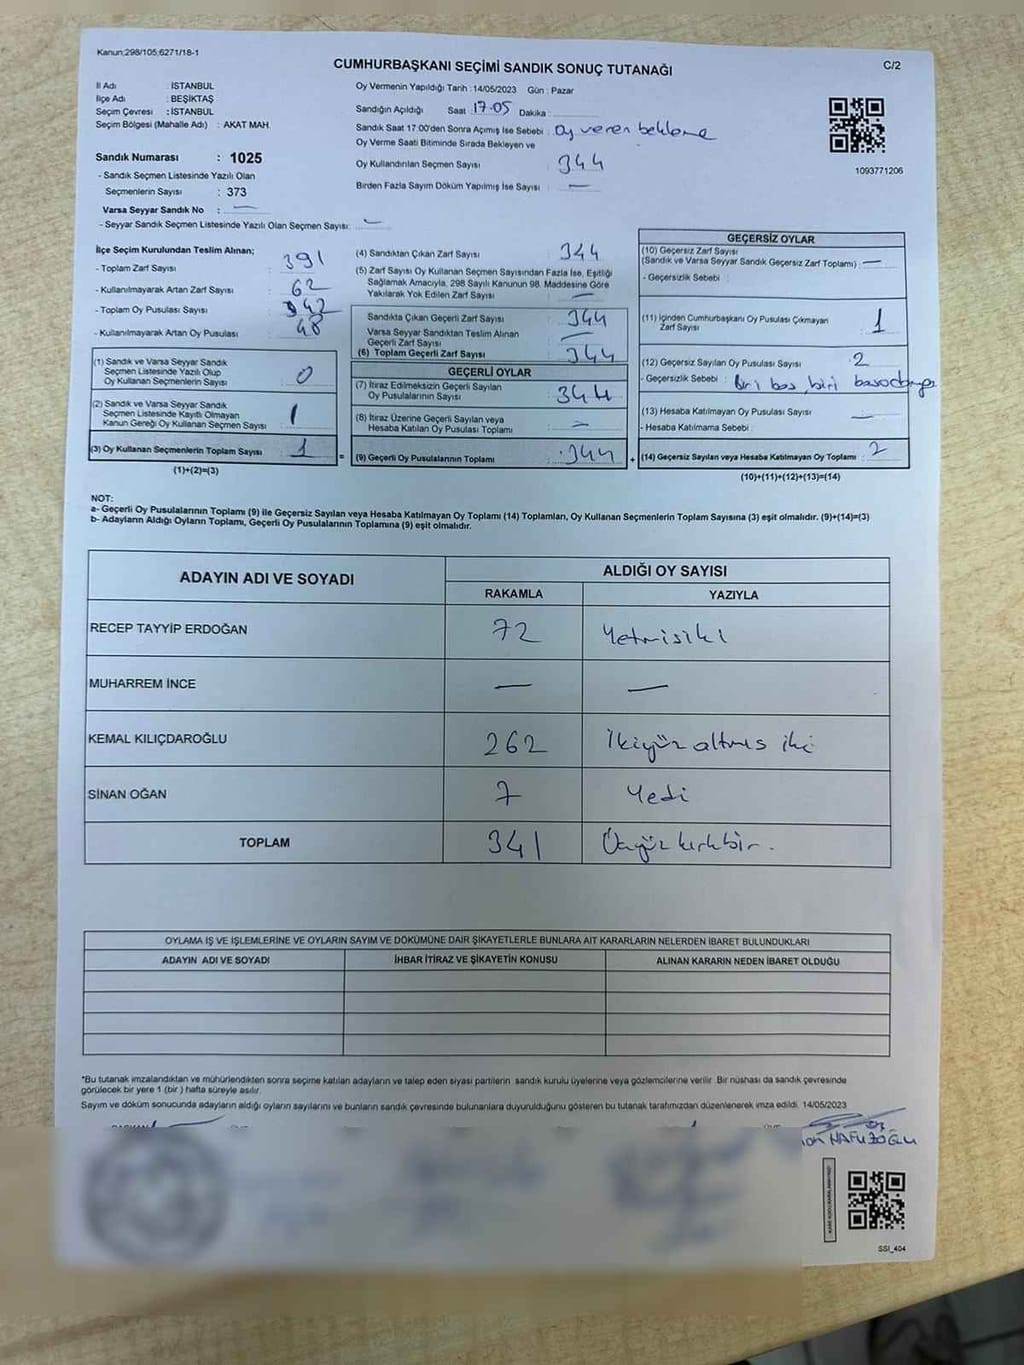 Kanun:298/105;6271/18-1
CUMHURBAŞKANI SEÇİMİ SANDIK SONUÇ TUTANAĞI
C/2
İl Adı : İSTANBUL
İlçe Adı : BEŞİKTAŞ
Seçim Çevresi : İSTANBUL
Seçim Bölgesi (Mahalle Adı) : AKAT MAH.
Sandık Numarası : 1025
- Sandık Seçmen Listesinde Yazılı Olan
Seçmenlerin Sayısı : 373
Varsa Seyyar Sandık No : —
- Seyyar Sandık Seçmen Listesinde Yazılı Olan Seçmen Sayısı: —
Oy Vermenin Yapıldığı Tarih : 14/05/2023 Gün : Pazar
Sandığın Açıldığı Saat : 17.05 Dakika :
Sandık Saat 17:00'den Sonra Açımış İse Sebebi : Oy veren bekleme
Oy Verme Saati Bitiminde Sırada Bekleyen ve
Oy Kullandırılan Seçmen Sayısı : 344
Birden Fazla Sayım Döküm Yapılmış İse Sayısı : —
1093771206
İlçe Seçim Kurulundan Teslim Alınan;
- Toplam Zarf Sayısı : 391
- Kullanılmayarak Artan Zarf Sayısı : 62
- Toplam Oy Pusulası Sayısı : 342
- Kullanılmayarak Artan Oy Pusulası : 48
(1) Sandık ve Varsa Seyyar Sandık
Seçmen Listesinde Yazılı Olup
Oy Kullanan Seçmenlerin Sayısı : 0
(2) Sandık ve Varsa Seyyar Sandık
Seçmen Listesinde Kayıtlı Olmayan
Kanun Gereği Oy Kullanan Seçmen Sayısı : 1
(3) Oy Kullanan Seçmenlerin Toplam Sayısı : 1
(1)+(2)=(3)
(4) Sandıktan Çıkan Zarf Sayısı : 344
(5) Zarf Sayısı Oy Kullanan Seçmen Sayısından Fazla İse, Eşitliği
Sağlamak Amacıyla, 298 Sayılı Kanunun 98. Maddesine Göre
Yakılarak Yok Edilen Zarf Sayısı : —
Sandıkta Çıkan Geçerli Zarf Sayısı : 344
Varsa Seyyar Sandıktan Teslim Alınan
Geçerli Zarf Sayısı : —
(6) Toplam Geçerli Zarf Sayısı : 344
GEÇERLİ OYLAR
(7) İtiraz Edilmeksizin Geçerli Sayılan
Oy Pusulalarının Sayısı : 344
(8) İtiraz Üzerine Geçerli Sayılan veya
Hesaba Katılan Oy Pusulası Toplamı : —
= (9) Geçerli Oy Pusulalarının Toplamı : 344 +
GEÇERSİZ OYLAR
(10) Geçersiz Zarf Sayısı
(Sandık ve Varsa Seyyar Sandık Geçersiz Zarf Toplamı) : —
- Geçersizlik Sebebi :
(11) İçinden Cumhurbaşkanı Oy Pusulası Çıkmayan
Zarf Sayısı : 1
(12) Geçersiz Sayılan Oy Pusulası Sayısı : 2
- Geçersizlik Sebebi : biri boş, biri
(13) Hesaba Katılmayan Oy Pusulası Sayısı : —
- Hesaba Katılmama Sebebi :
(14) Geçersiz Sayılan veya Hesaba Katılmayan Oy Toplamı : 2
(10)+(11)+(12)+(13)=(14)
NOT:
a- Geçerli Oy Pusulalarının Toplamı (9) ile Geçersiz Sayılan veya Hesaba Katılmayan Oy Toplamı (14) Toplamları, Oy Kullanan Seçmenlerin Toplam Sayısına (3) eşit olmalıdır. (9)+(14)=(3)
b- Adayların Aldığı Oyların Toplamı, Geçerli Oy Pusulalarının Toplamına (9) eşit olmalıdır.
ADAYIN ADI VE SOYADI
ALDIĞI OY SAYISI
RAKAMLA YAZIYLA
RECEP TAYYİP ERDOĞAN 72 Yetmişiki
MUHARREM İNCE — —
KEMAL KILIÇDAROĞLU 262 İkiyüz altmış iki
SİNAN OĞAN 7 Yedi
TOPLAM 341 Üçyüz kırkbir.
OYLAMA İŞ VE İŞLEMLERİNE VE OYLARIN SAYIM VE DÖKÜMÜNE DAİR ŞİKAYETLERLE BUNLARA AİT KARARLARIN NELERDEN İBARET BULUNDUKLARI
ADAYIN ADI VE SOYADI İHBAR İTİRAZ VE ŞİKAYETİN KONUSU ALINAN KARARIN NEDEN İBARET OLDUĞU
*Bu tutanak imzalandıktan ve mühürlendikten sonra seçime katılan adayların ve talep eden siyasi partilerin sandık kurulu üyelerine veya gözlemcilerine verilir. Bir nüshası da sandık çevresinde
görülecek bir yere 1 (bir) hafta süreyle asılır.
Sayım ve döküm sonucunda adayların aldığı oyların sayılarını ve bunların sandık çevresinde bulunanlara duyurulduğunu gösteren bu tutanak tarafımızdan düzenlenerek imza edildi. 14/05/2023
HAFIZOĞLU
SSI_404